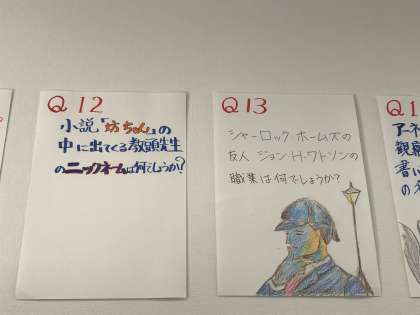 Q12
小説「坊ちゃん」の
中に出てくる教頭先生
のニックネームは何でしょうか?
Q13
シャーロックホームズの
友人 ジョン・H・ワトソンの
職業は何でしょうか?
Q1
アーネ
観察
書い
の